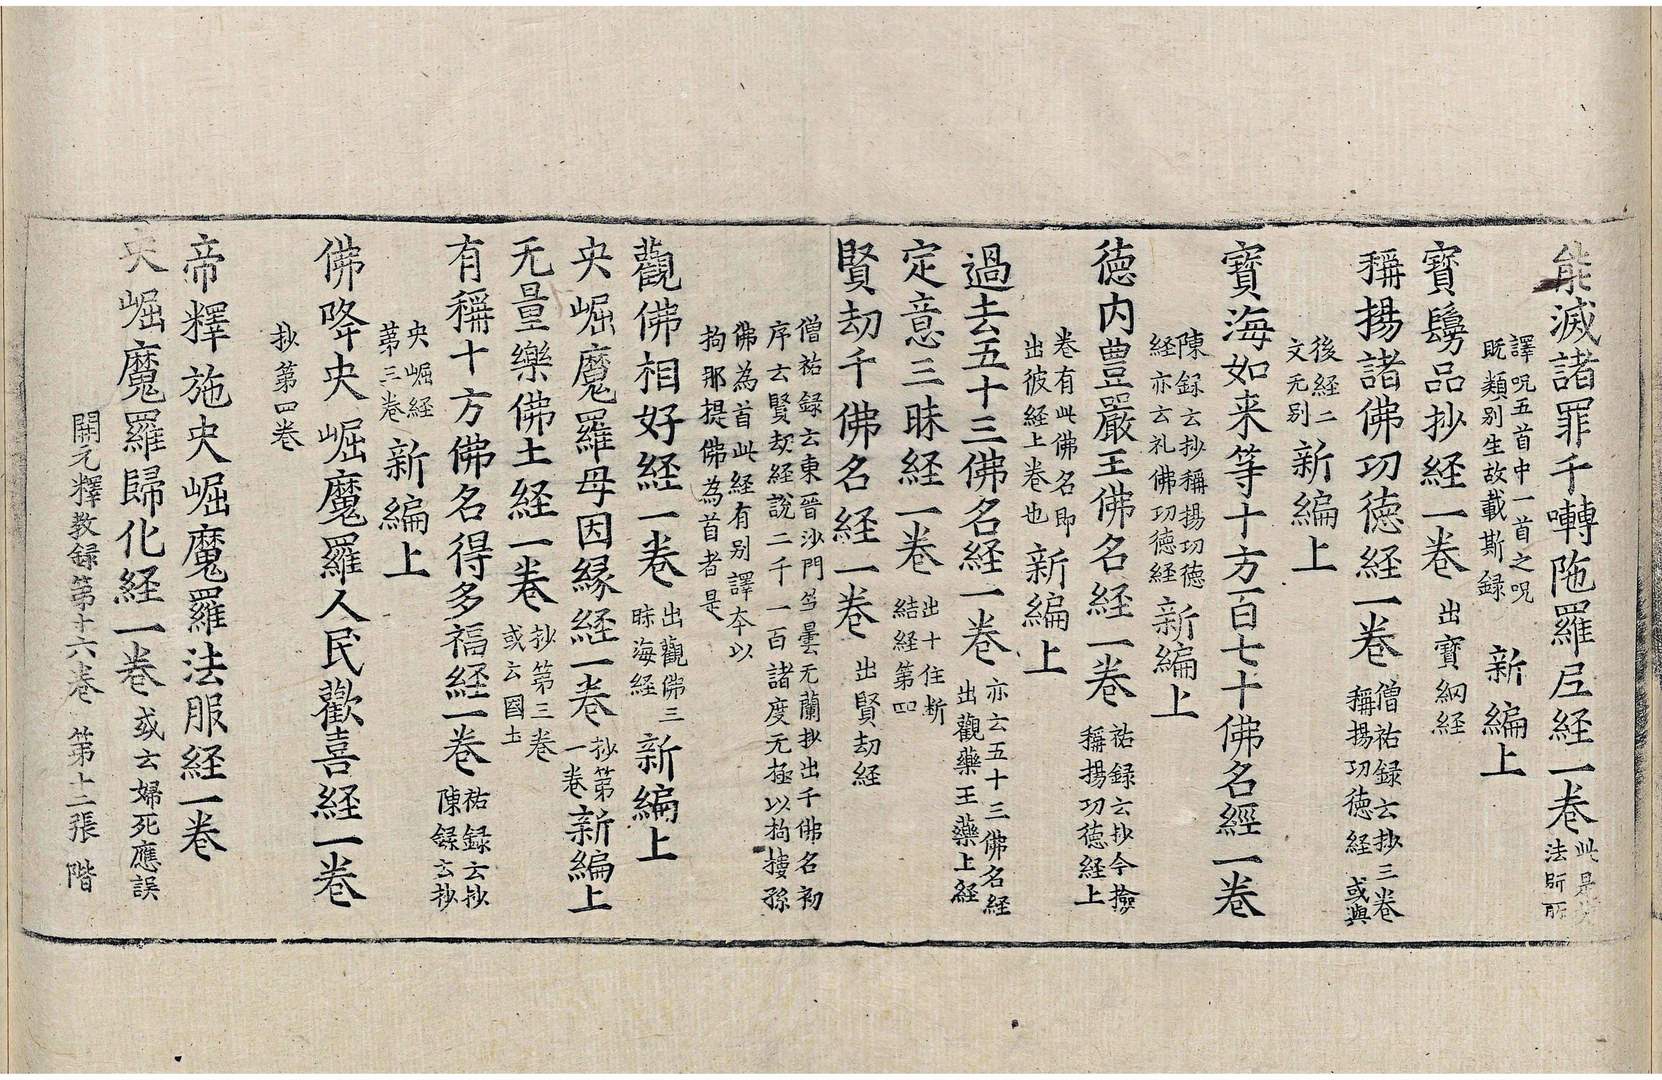 能滅諸罪千囀陁羅尼経一卷此是
法師所
譯呪五首中一首之呪
既類别生故載斯録 新編上
寳鬘品抄経一卷 出寳網経
稱揚諸佛功徳経一卷僧祐録云抄三卷
稱揚功徳経或與
後経二
文无别新編上
寳海如来等十方一百七十佛名經一卷
陳録云抄稱揚功徳
経亦云礼佛功徳経新編上
徳内豊嚴王佛名経一卷祐録云抄今撿
稱揚功徳経上
卷有此佛名即
出彼経上卷也新編上
過去五十三佛名経一卷亦云五十三佛名経
出觀藥王藥上経
定意三昧経一卷出十住斷
結経第四
賢劫千佛名経一卷 出賢劫経
僧祐録云東晉沙門竺曇无蘭抄出千佛名初
序云賢劫経說二千一百諸度无極以拘摟孫
佛為首此経有别譯夲以
拘那提佛為首者是
觀佛相好経一卷出觀佛三
昧海経新編上
央崛魔羅母因縁経一卷抄第
一卷新編上
无量樂佛土経一卷抄第三卷
或云國土
有稱十方佛名得多福経一卷祐録云抄
陳録云抄
央崛経
第三卷新編上
佛降央崛魔羅人民歡喜経一卷
抄第四卷
帝釋施央崛魔羅法服経一卷
央崛魔羅歸化経一卷或云婦死應誤
開元釋教録第十六卷 第十二張 階